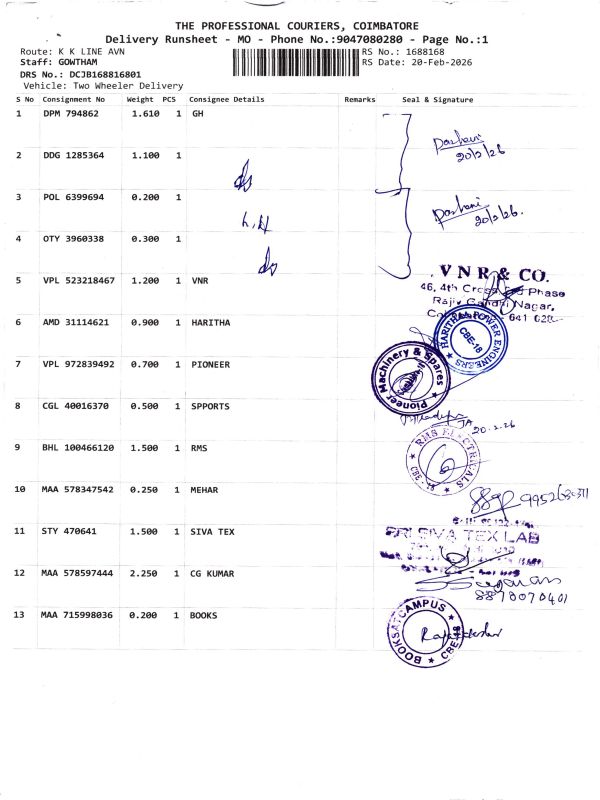 THE PROFESSIONAL COURIERS, COIMBATORE
Delivery Runsheet - MO - Phone No.:9047080280 - Page No.:1
Route: K K LINE AVN RS No.: 1688168
Staff: GOWTHAM RS Date: 20-Feb-2026
DRS No.: DCJB168816801
Vehicle: Two Wheeler Delivery
S No Consignment No Weight PCS Consignee Details Remarks Seal & Signature
1 DPM 794862 1.610 1 GH
20/2/26
2 DDG 1285364 1.100 1
3 POL 6399694 0.200 1
20/2/26.
4 OTY 3960338 0.300 1
5 VPL 523218467 1.200 1 VNR
VNR & CO.
46, 4th Cross Phase
Rajiv Gandhi Nagar,
641 028
6 AMD 31114621 0.900 1 HARITHA
HARITHA POWER ENGINEERS
CBE-18
7 VPL 972839492 0.700 1 PIONEER
Pioneer Machinery & Spares
8 CGL 40016370 0.500 1 SPPORTS
20-2-26
9 BHL 100466120 1.500 1 RMS
RMS ELECTRICALS
CBE - 18
10 MAA 578347542 0.250 1 MEHAR
11 STY 470641 1.500 1 SIVA TEX
SRI SIVA TEX LAB
12 MAA 578597444 2.250 1 CG KUMAR
8870070401
13 MAA 715998036 0.200 1 BOOKS
BOOKSATCAMPUS
CBE-18